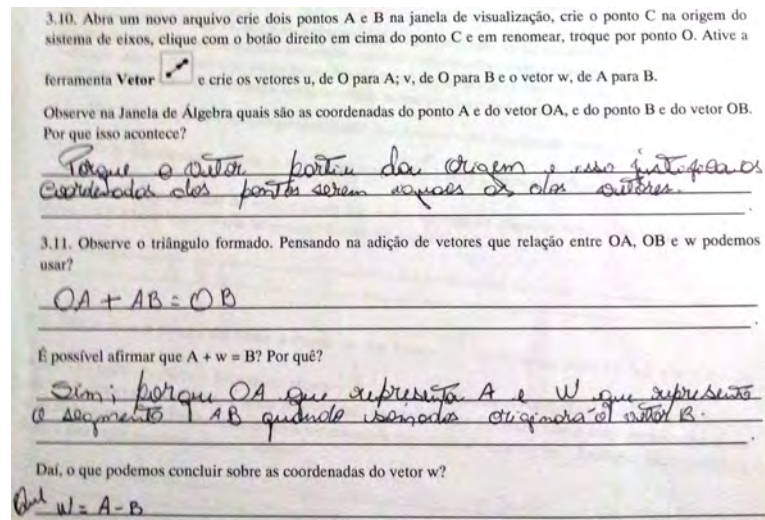 3.10. Abra um novo arquivo crie dois pontos A e B na janela de visualização, crie o ponto C na origem do
sistema de eixos, clique com o botão direito em cima do ponto C e em renomear, troque por ponto O. Ative a
ferramenta Vetor e crie os vetores u, de O para A; v, de O para B e o vetor w, de A para B.
Observe na Janela de Álgebra quais são as coordenadas do ponto A e do vetor OA, e do ponto B e do vetor OB.
Por que isso acontece?
Porque o vetor partiu da origem e isso justifica os
Coordenadas dos pontos serem iguais as dos vetores.
3.11. Observe o triângulo formado. Pensando na adição de vetores que relação entre OA, OB e w podemos
usar?
OA + AB = OB
É possível afirmar que A + w = B? Por quê?
Sim; porque OA que representa A e W que representa
o segmento AB quando somados originará o vetor B.
Daí, o que podemos concluir sobre as coordenadas do vetor w?
Que W = A - B